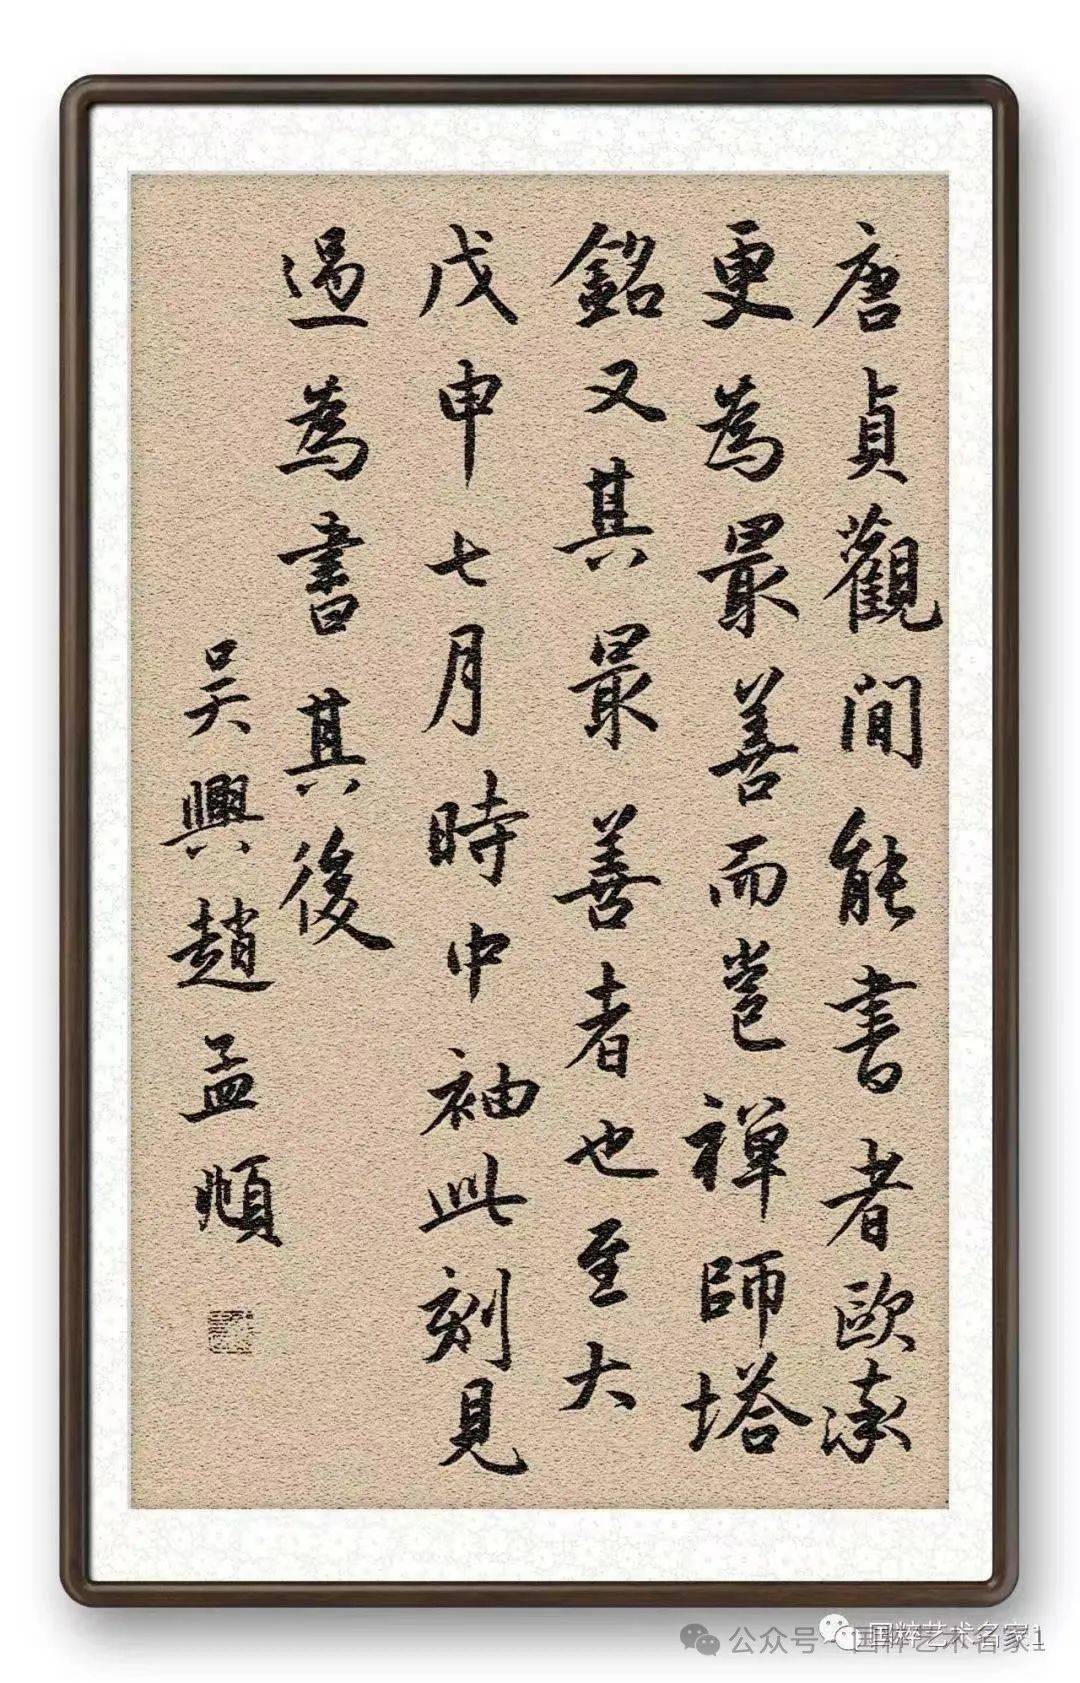 唐貞觀間能書者歐率
更為最善而邕禪師塔
銘又其最善者也至大
戊申七月時中袖此刻見
過為書其後
吳興趙孟頫
公众号·国粹艺术名家1
国粹艺术名家